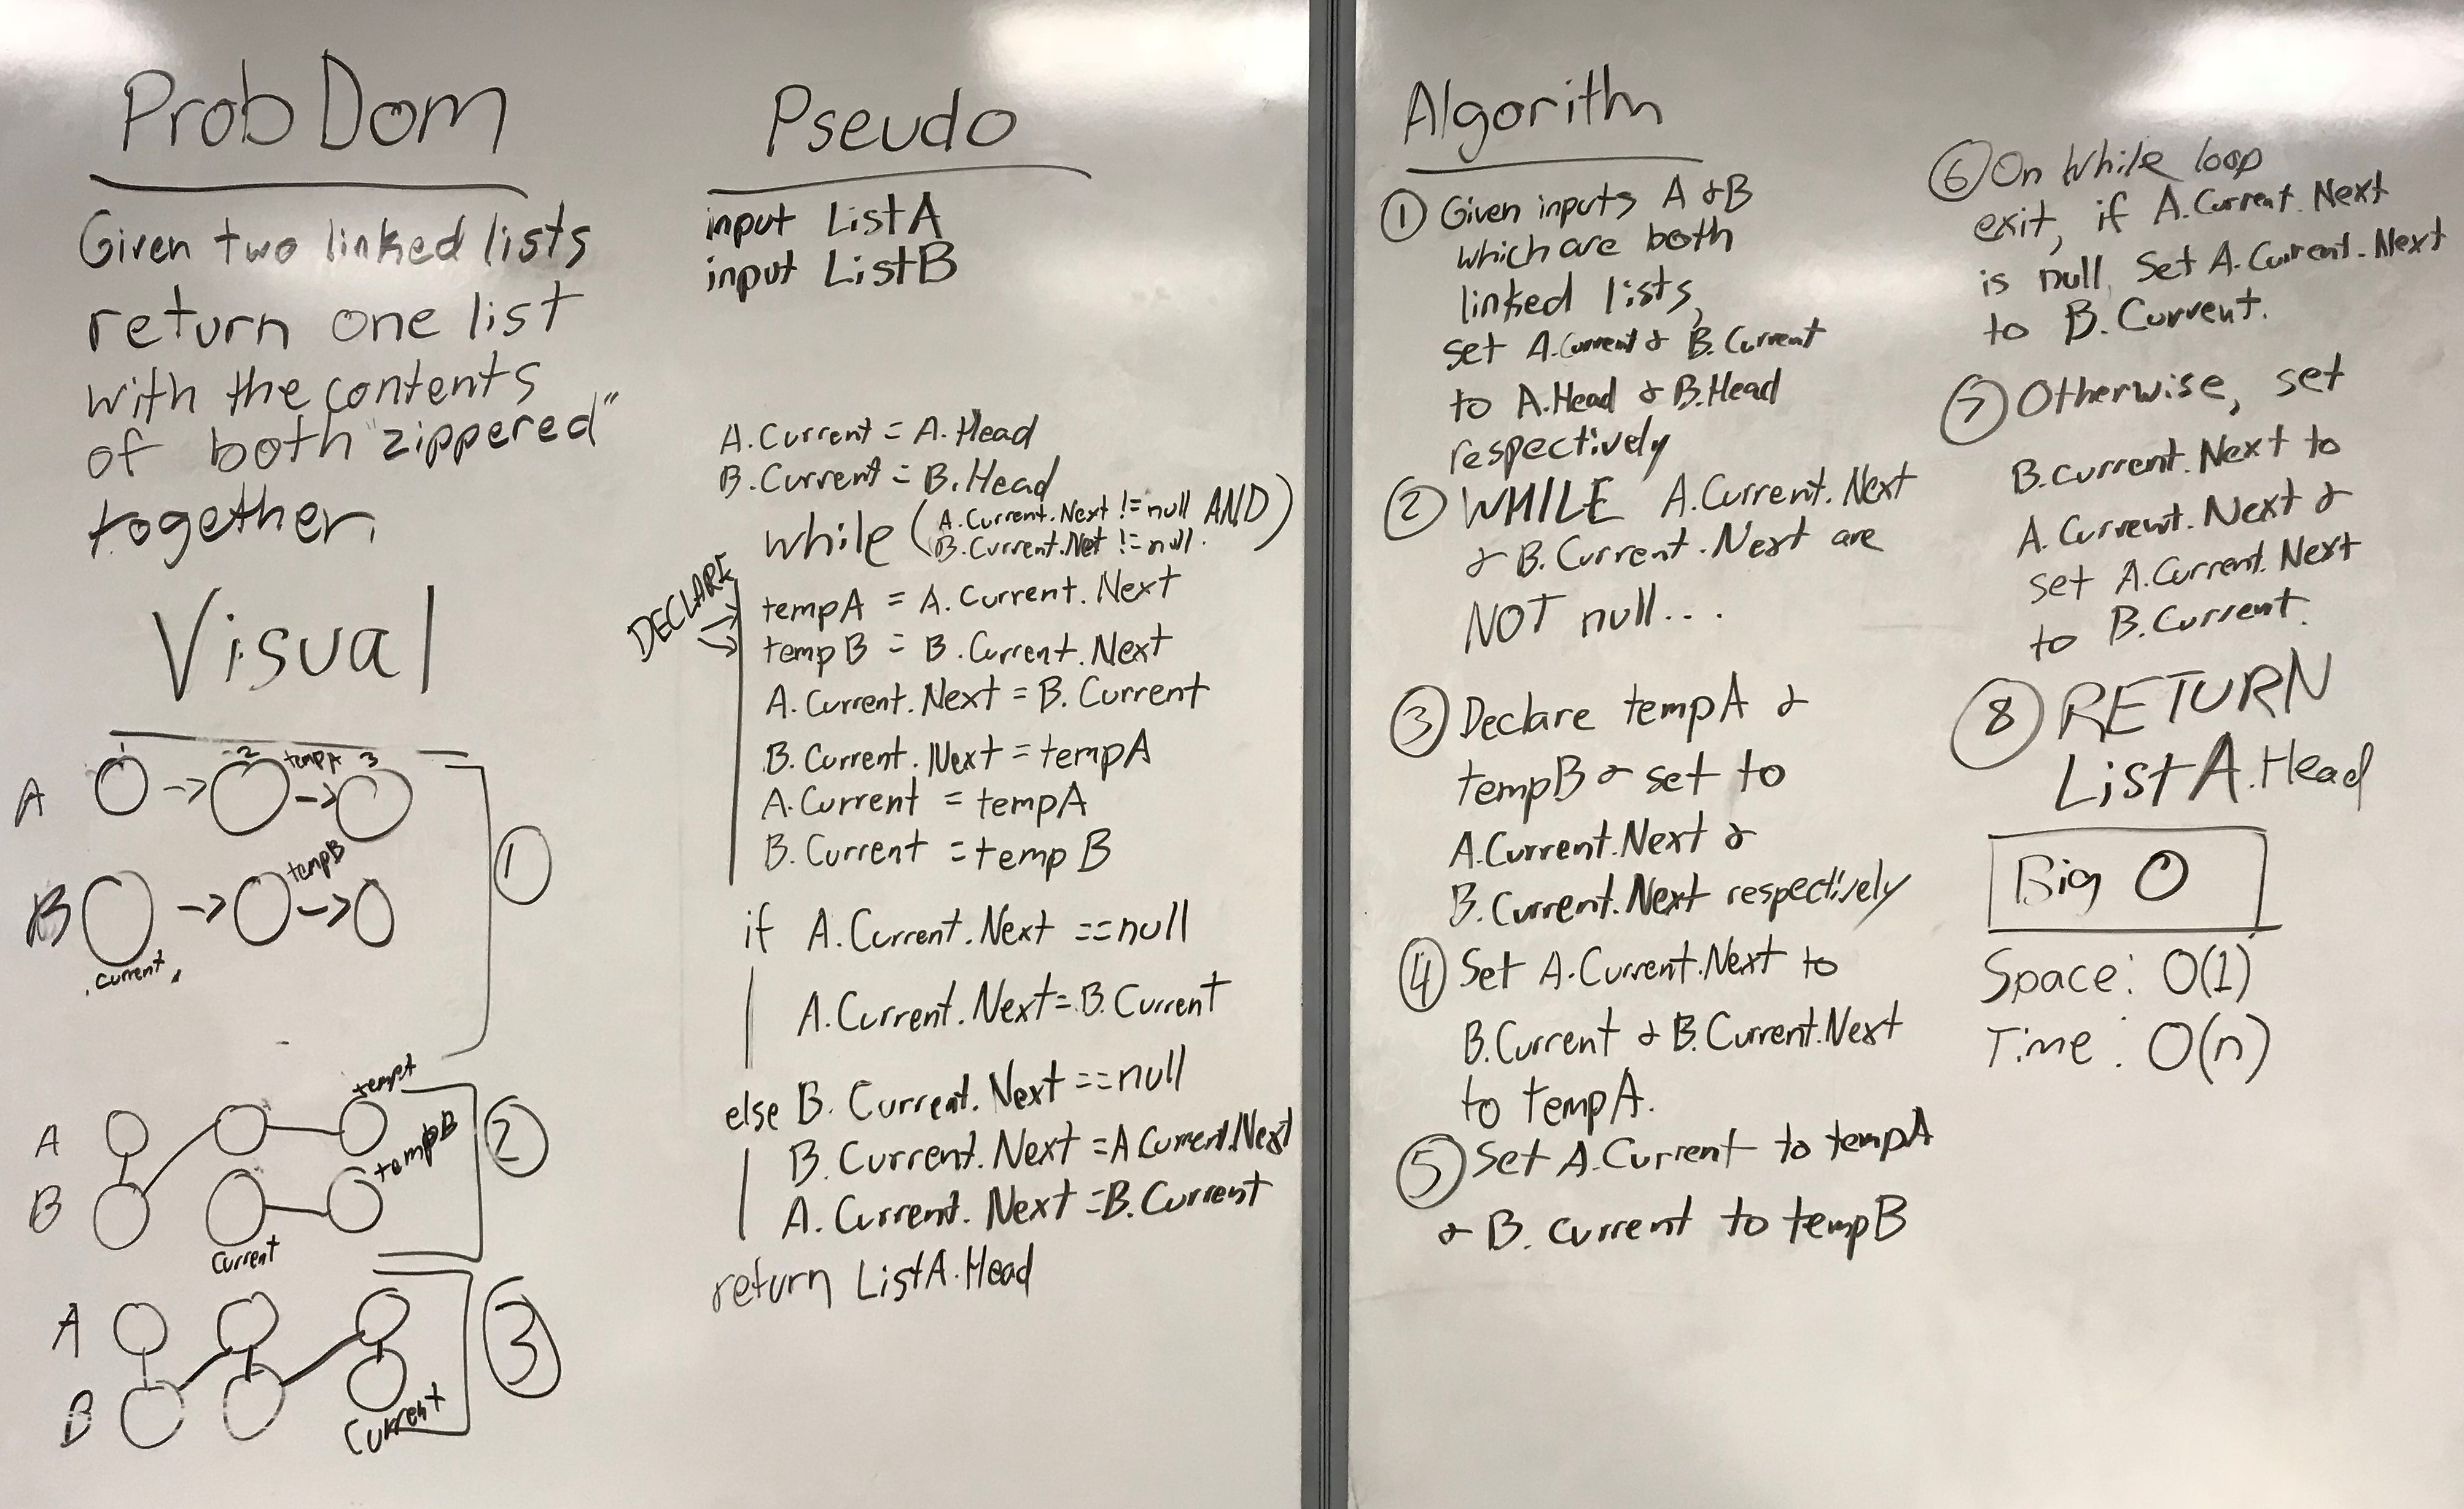 Prob Dom
Given two linked lists
return one list
with the contents
of both "zippered"
together.
Visual
1 2 tempA 3
A
tempB
B
.Current
1
tempA
A
tempB
B
Current
2
A
B
Current
3
Pseudo
input ListA
input ListB
A.Current = A.Head
B.Current = B.Head
while (A.Current.Next != null AND)
B.Current.Net != null.
DECLARE
tempA = A.Current.Next
tempB = B.Current.Next
A.Current.Next = B.Current
B.Current.Next = tempA
A.Current = tempA
B.Current = tempB
if A.Current.Next == null
A.Current.Next = B.Current
else B.Current.Next == null
B.Current.Next = A.Current.Next
A.Current.Next = B.Current
return ListA.Head
Algorithm
1 Given inputs A & B
which are both
linked lists,
set A.Current & B.Current
to A.Head & B.Head
respectively
2 WHILE A.Current.Next
& B.Current.Next are
NOT null...
3 Declare tempA &
tempB & set to
A.Current.Next &
B.Current.Next respectively
4 Set A.Current.Next to
B.Current & B.Current.Next
to tempA.
5 Set A.Current to tempA
& B.Current to tempB
6 On While loop
exit, if A.Current.Next
is null, set A.Current.Next
to B.Current.
7 Otherwise, set
B.current.Next to
A.Current.Next &
set A.Current.Next
to B.Current.
8 RETURN
ListA.Head
Big O
Space: O(1)
Time: O(n)